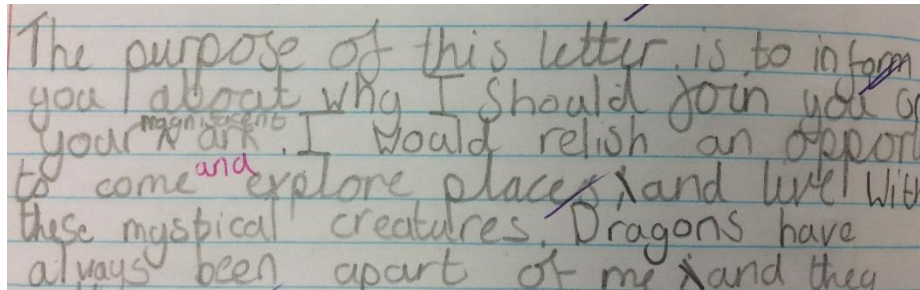 The purpose of this letter is to inform
you about why I should join you
magnificent
your ark. I would relish an oppor
and
to come explore places and live with
these mystical creatures. Dragons have
always been apart of me and they